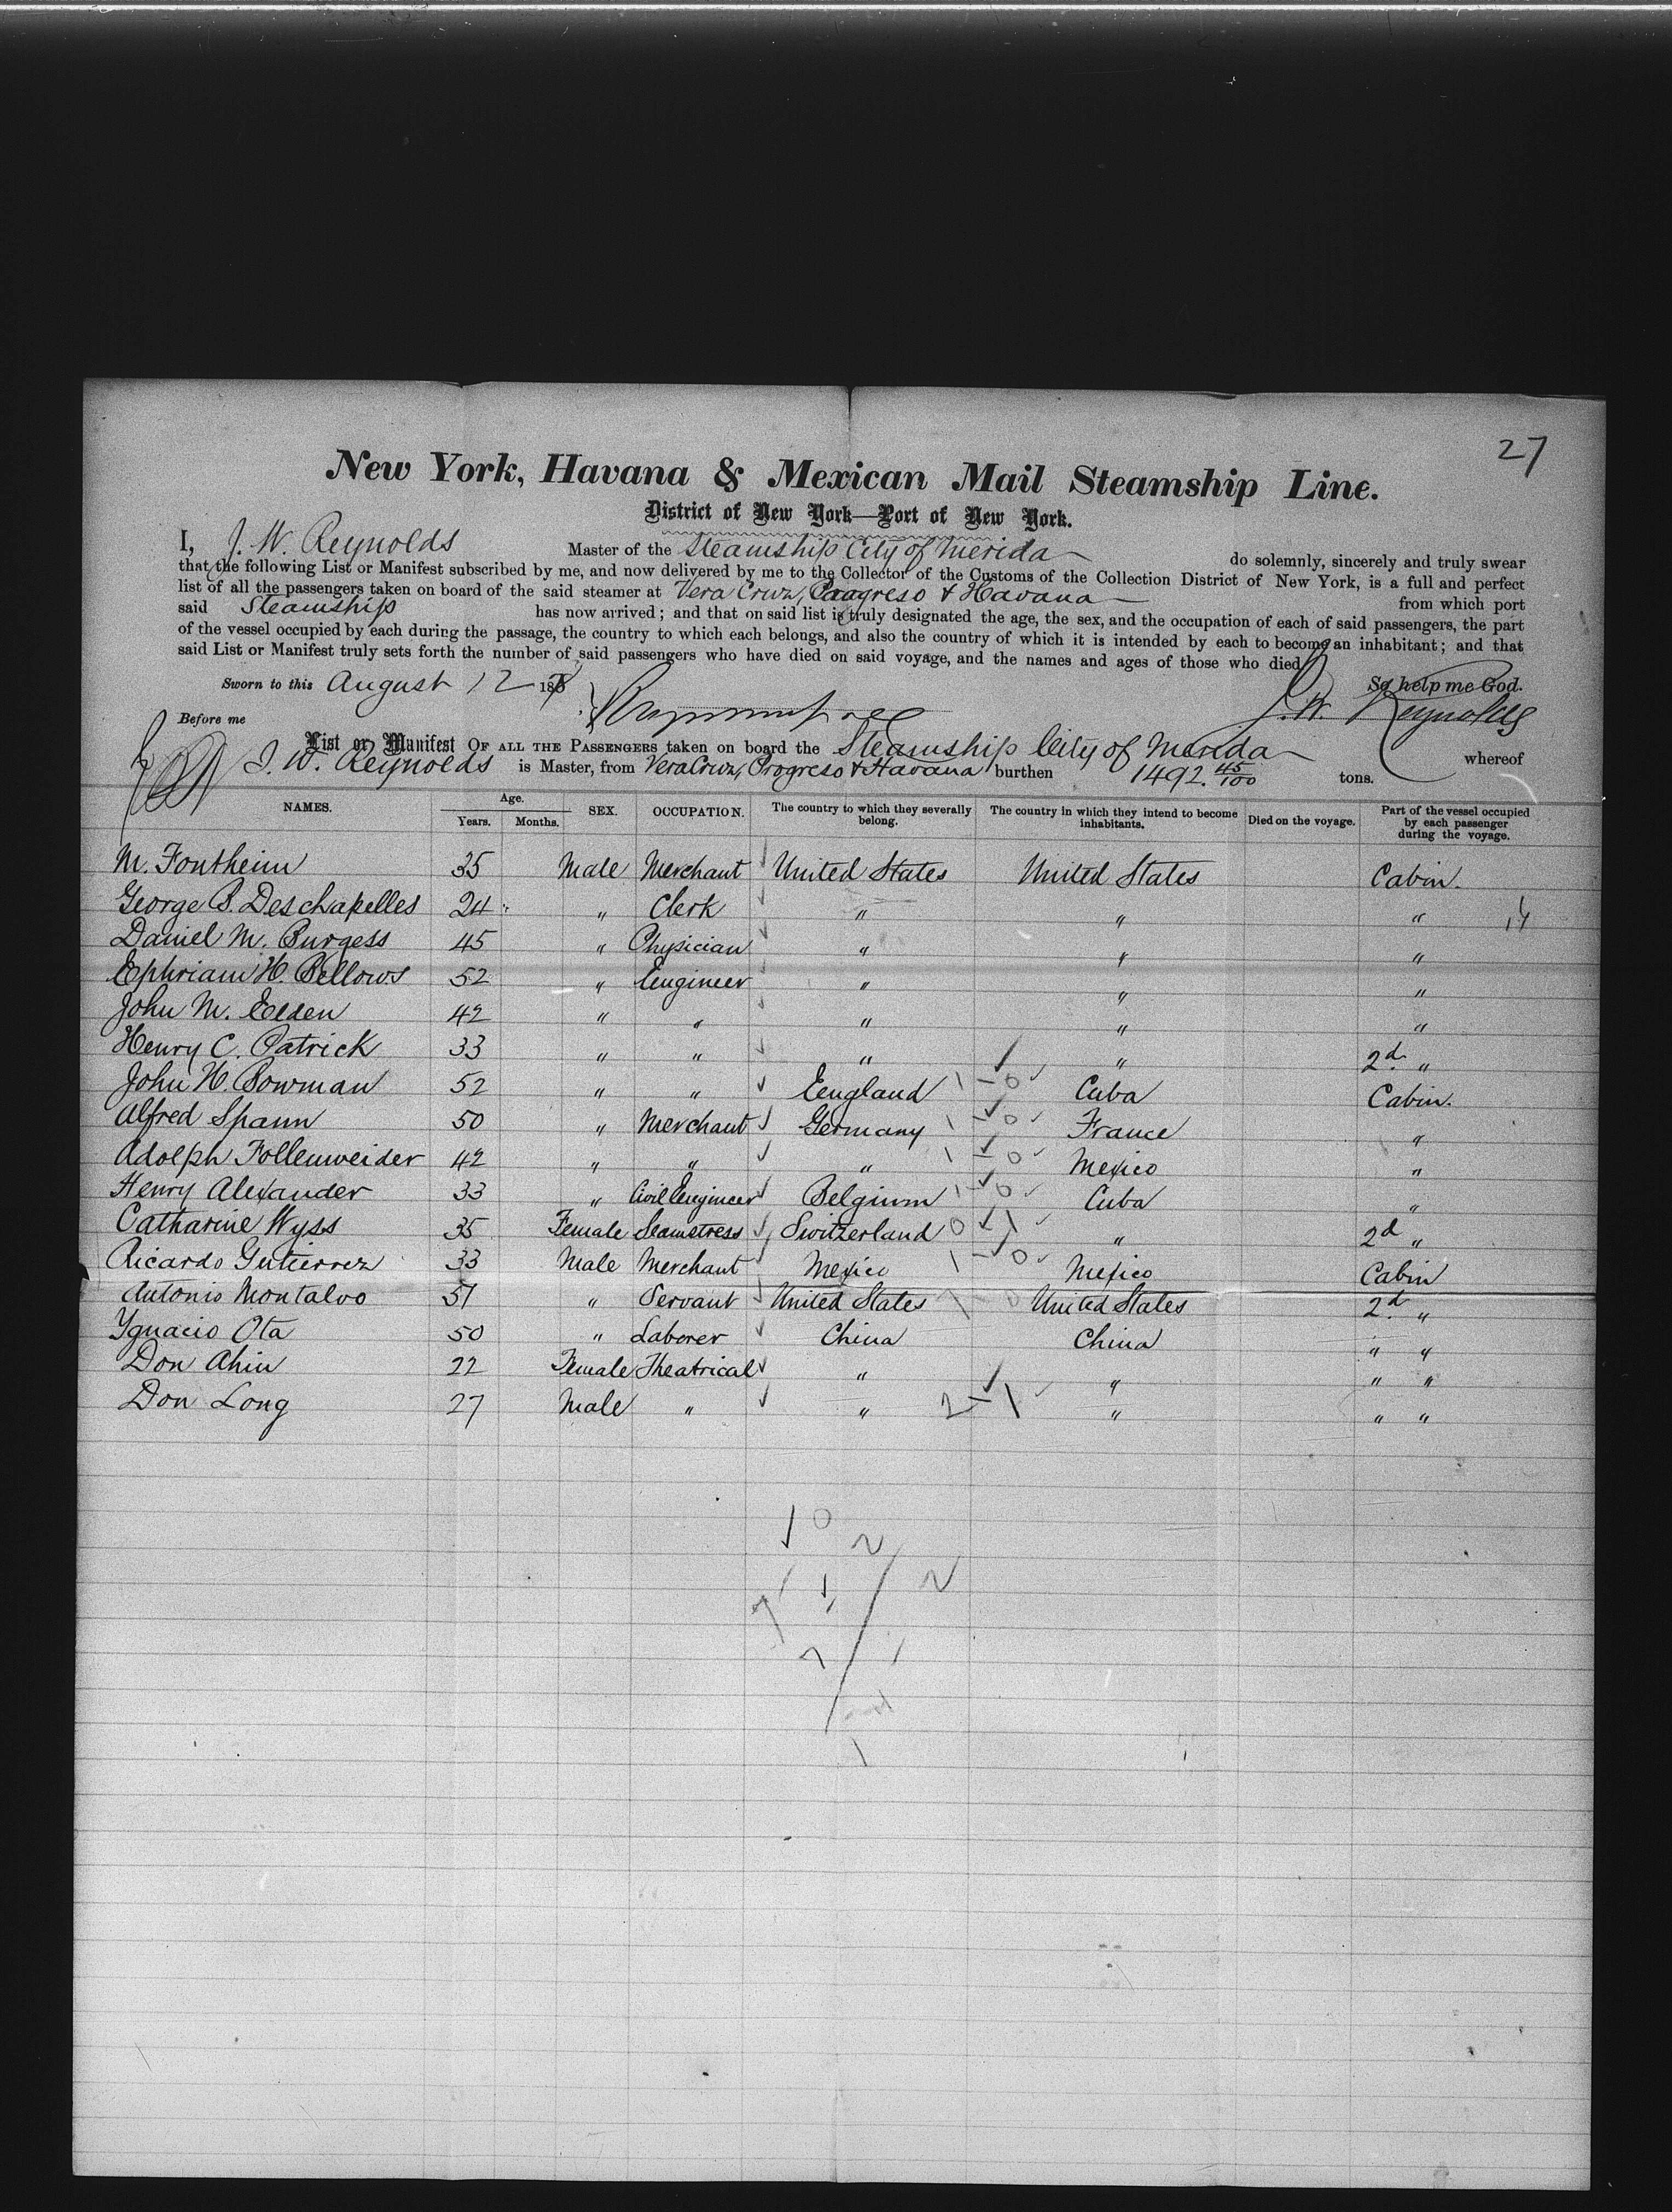 27
New York, Havana & Mexican Mail Steamship Line.
District of New York—Port of New York.
I, J. W. Reynolds Master of the Steamship City of Merida do solemnly, sincerely and truly swear
that the following List or Manifest subscribed by me, and now delivered by me to the Collector of the Customs of the Collection District of New York, is a full and perfect
list of all the passengers taken on board of the said steamer at Vera Cruz, Progreso & Havana from which port
said Steamship has now arrived; and that on said list is truly designated the age, the sex, and the occupation of each of said passengers, the part
of the vessel occupied by each during the passage, the country to which each belongs, and also the country of which it is intended by each to become an inhabitant; and that
said List or Manifest truly sets forth the number of said passengers who have died on said voyage, and the names and ages of those who died.
Sworn to this August 12 187 So help me God.
Before me J. W. Reynolds
List or Manifest OF ALL THE PASSENGERS taken on board the Steamship City of Merida whereof
J. W. Reynolds is Master, from Vera Cruz, Progreso & Havana burthen 1492. 45/100 tons.
NAMES. Age. Years. Months. SEX. OCCUPATION. The country to which they severally belong. The country in which they intend to become inhabitants. Died on the voyage. Part of the vessel occupied by each passenger during the voyage.
M. Fontheim 35 Male Merchant United States United States Cabin.
George B. Deschapelles 24 " Clerk " " "
Daniel M. Burgess 45 " Physician " " "
Ephriam H. Bellows 52 " Engineer " " "
John M. Elden 42 " " " " "
Henry C. Patrick 33 " " " " 2d. "
John H. Bowman 52 " " England 1 - 0 Cuba Cabin.
Alfred Spann 50 " Merchant Germany 1 - 0 France "
Adolph Follenweider 42 " " " 1 - 0 Mexico "
Henry Alexander 33 " Civil Engineer Belgium 1 - 0 Cuba "
Catharine Wyss 35 Female Seamstress Switzerland 0 - 1 " 2d "
Ricardo Gutierrez 33 Male Merchant Mexico 1 - 0 Mexico Cabin
Antonio Montalvo 51 " Servant United States United States 2d. "
Ygnacio Ota 50 " Laborer China China " "
Don Ahin 22 Female Theatrical " " " "
Don Long 27 Male " " 2 - 1 " " "
10
2
1 2
7
7 1
1